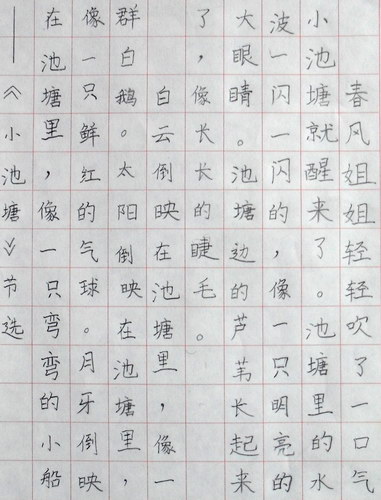 春风姐姐轻轻吹了一口气
小池塘就醒来了。池塘里的水
波一闪一闪的，像一只明亮的
大眼睛。池塘边的芦苇长起来
了，像长长的睫毛。
白云倒映在池塘里，像一
群白鹅。太阳倒映在池塘里，
像一只鲜红的气球。月牙倒映
在池塘里，像一只弯弯的小船
——《小池塘》节选